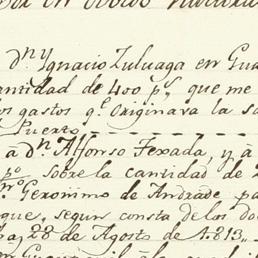 dn. Ygnacio Zuluaga en Gua
antidad de 400 ps. que me
os gastos qe. Originava la sa
Puerto
a dn. Alfonso Texada, y à
po. sobre la cantidad de 2
Geronimo de Andrade pa
que, segun consta de los do
ha, 28 de Agosto de 1.813